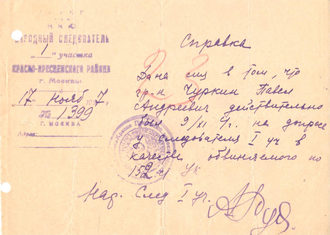 НКЮ
НАРОДНЫЙ СЛЕДОВАТЕЛЬ
1 участка
КРАСНО-ПРЕСНЕНСКОГО РАЙОНА
г. Москвы
17 нояб
№ 1399
г. МОСКВА
Справка
Дана сия в том, что
гр-н Чуркин Павел
Андреевич действительно
был 9/XI на допросе
у следователя I уч в
качестве обвиняемого по
УК
Нар. След I уч.